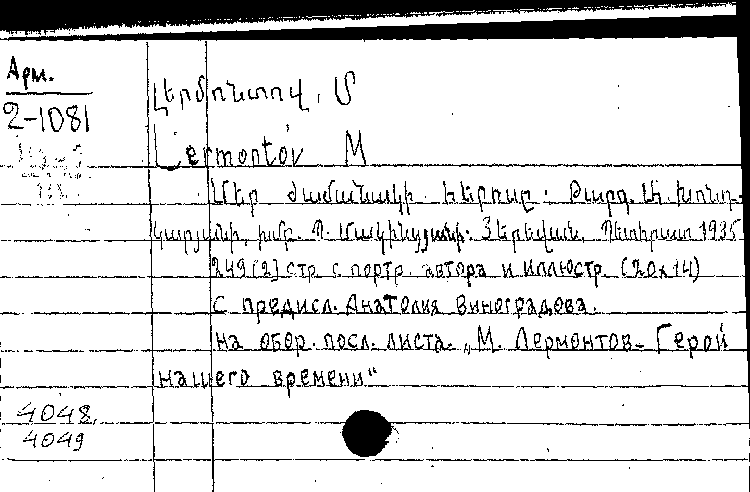 Арм.
2-1081
Լերմոնտով, Մ
Lermontov M
Մեր ժամանակի հերոսը: Թարգ.
խմբ. Պ. Մակինցյանի: Յերեվան, Պետհրատ 1935
249 [2] стр. с портр. автора и иллюстр. (20x14)
с предисл. Анатолия Виноградова.
на обор. посл. листа. „М. Лермонтов- Герой
нашего времени“
4048,
4049